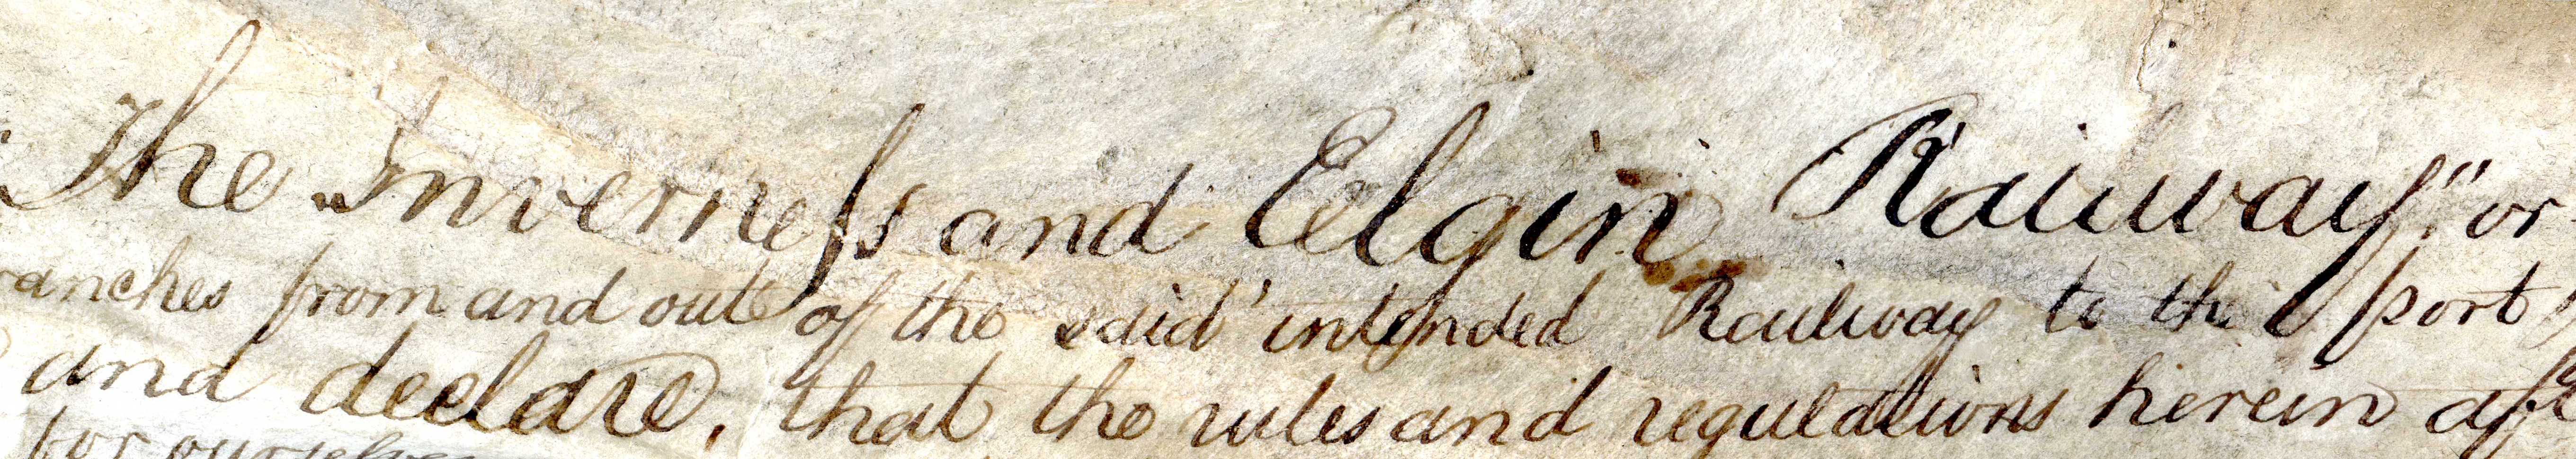 "The Inverneſs and Elgin Railway," or
ranches from and out of the said intended Railway to the port
and declare, that the rules and regulations herein aft
for ourselves